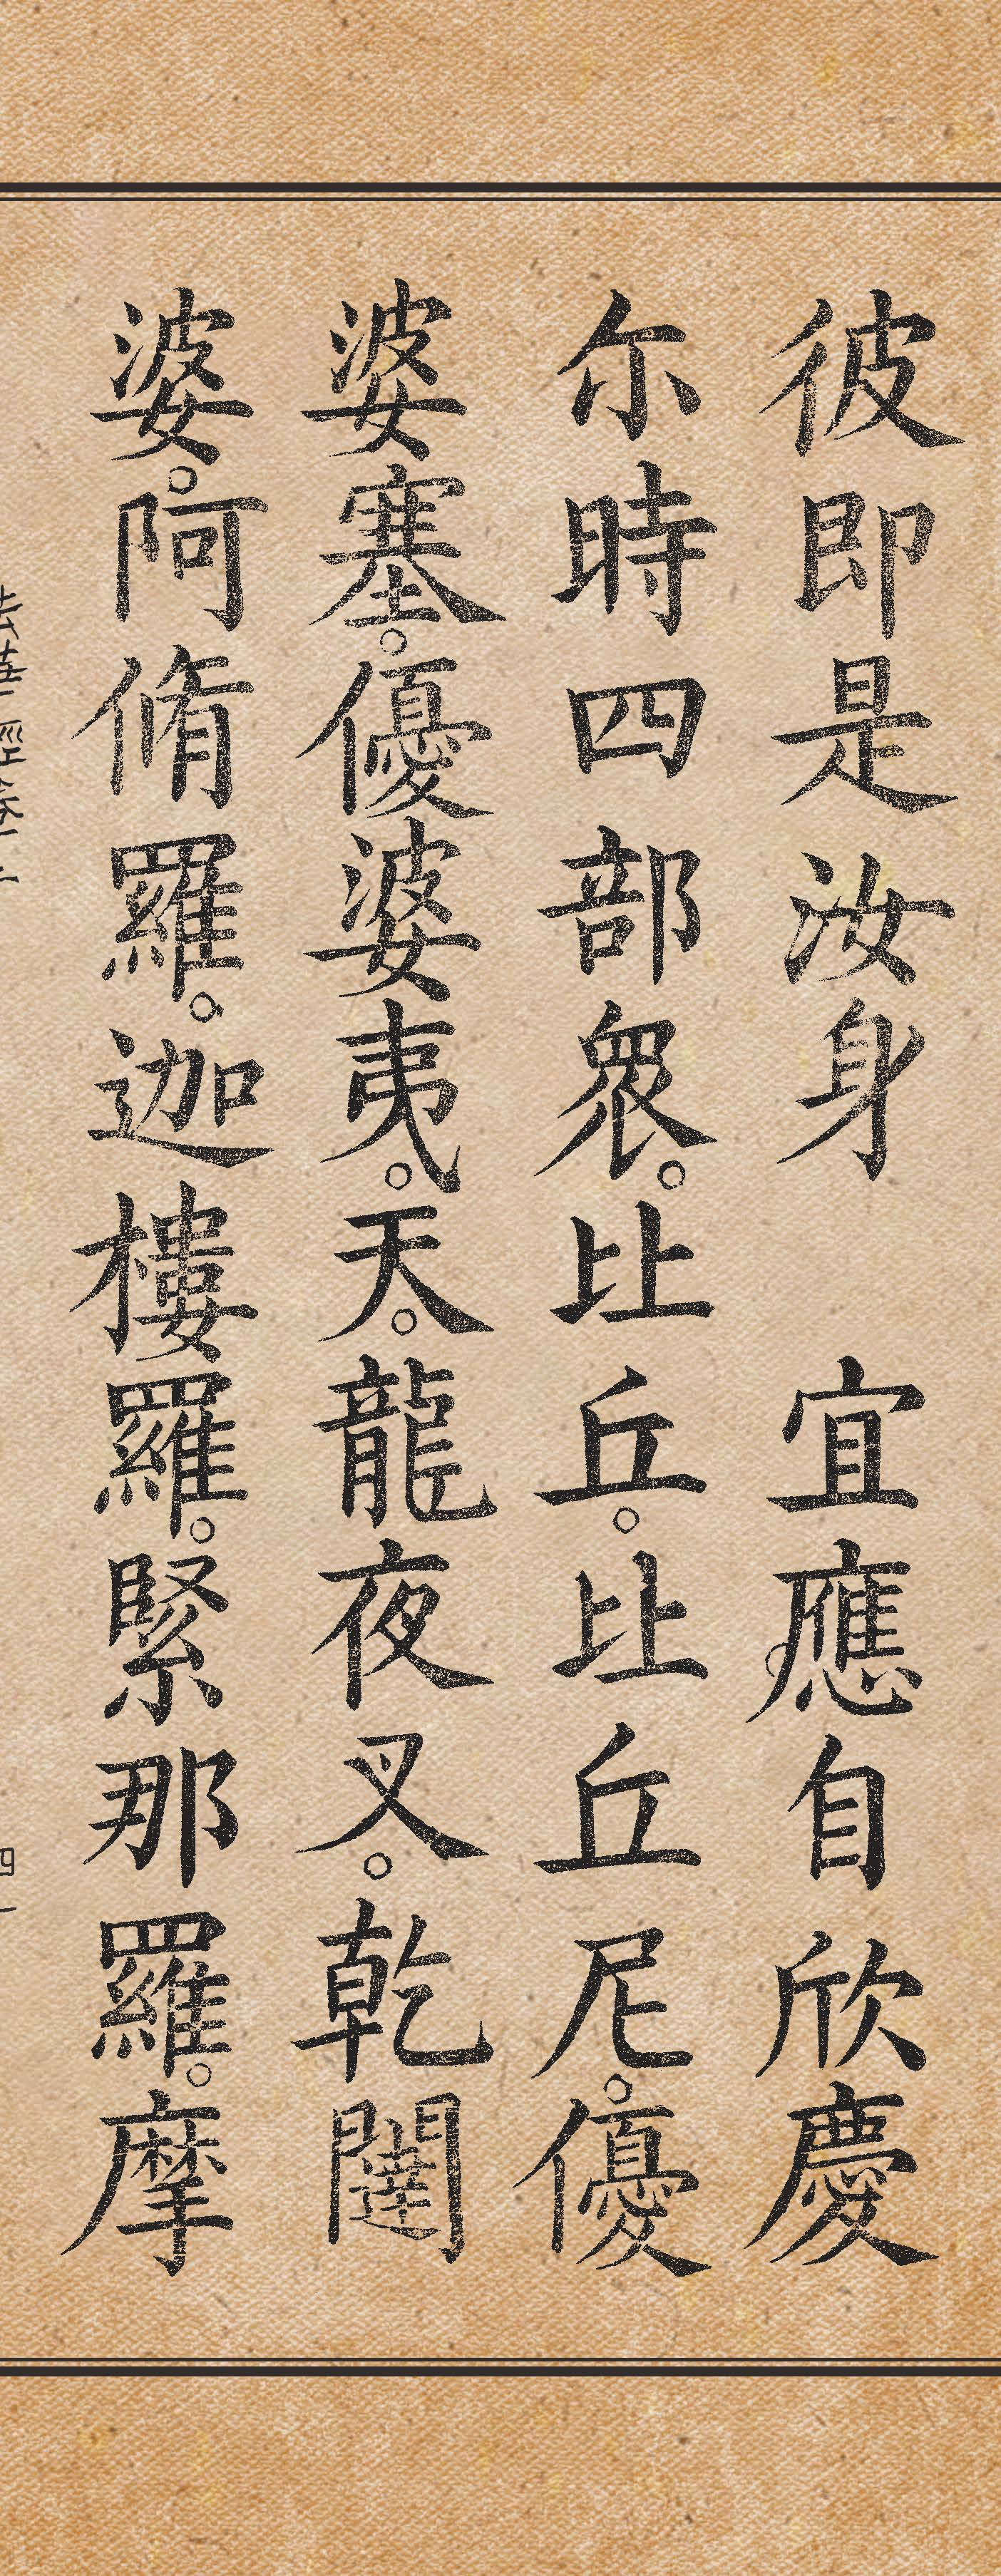 彼即是汝身　宜應自欣慶
尒時四部衆。比丘。比丘尼。優
婆塞。優婆夷。天。龍夜叉。乾闥
婆。阿脩羅。迦樓羅。緊那羅。摩